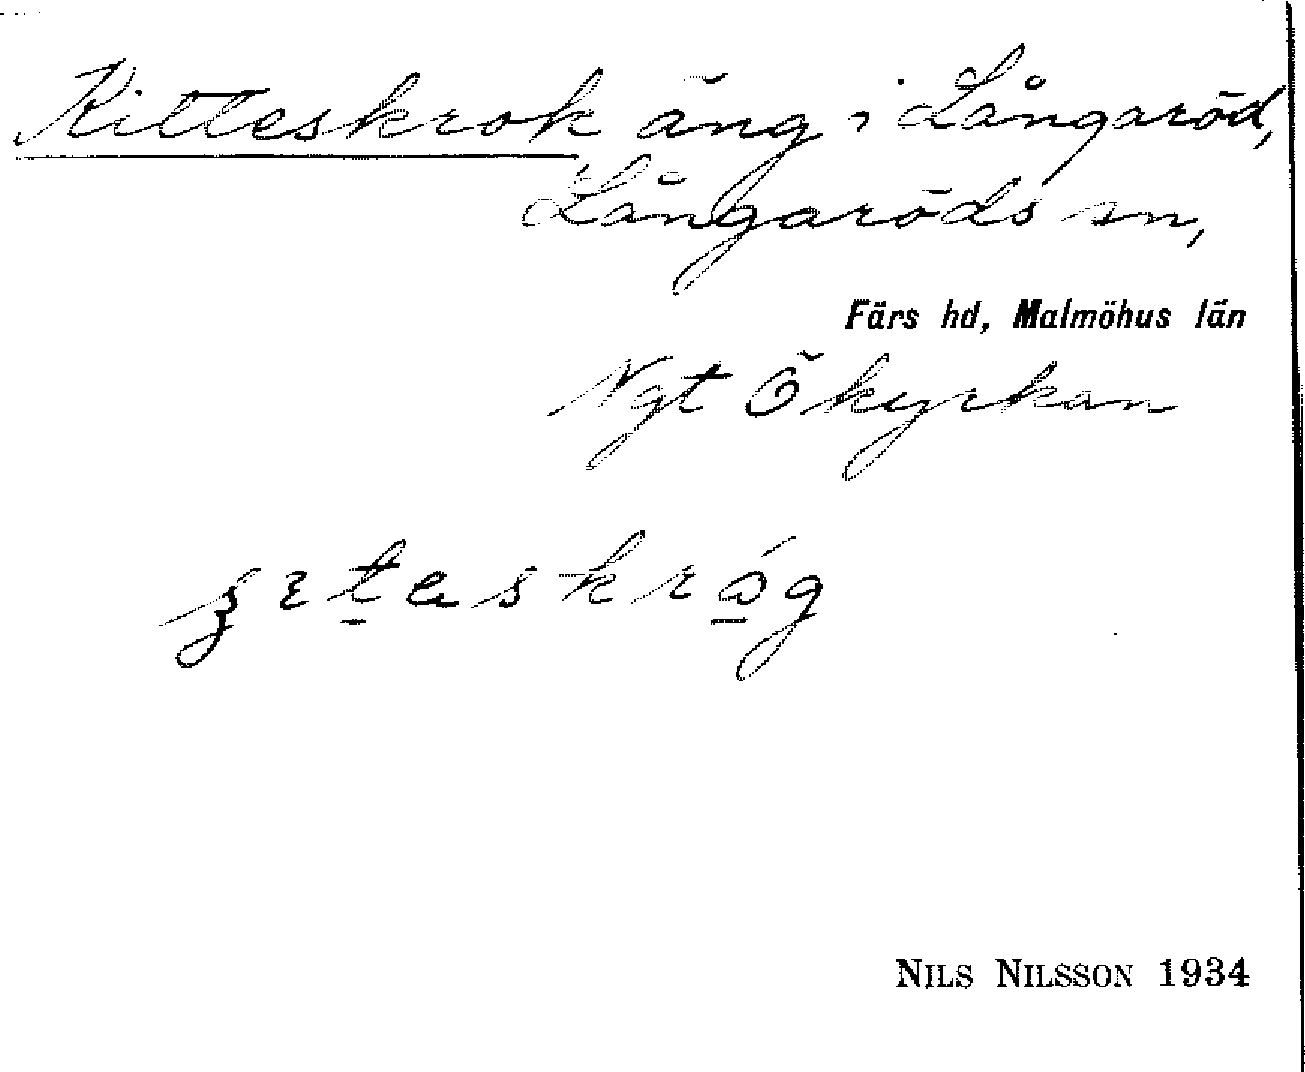 Kitteskrok äng i Långaröd,
Långaröds sn,
Färs hd, Malmöhus län
Ngt Ö kyrkan
NILS NILSSON 1934